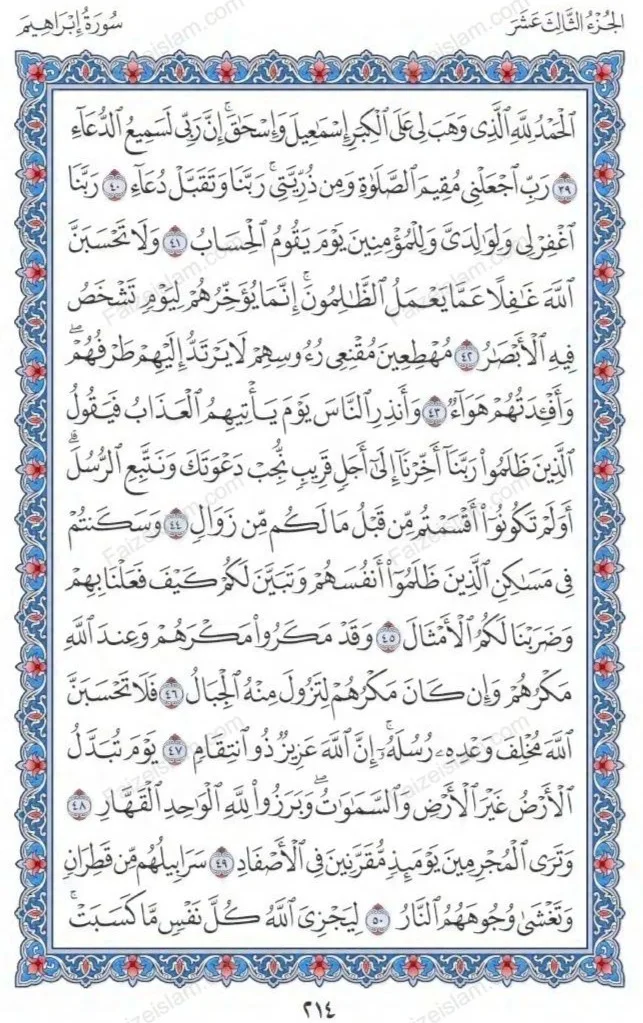 الجُزْءُ الثَّالِثَ عَشَرَ سُورَةُ إِبْرَاهِيمَ
ٱلْحَمْدُ لِلَّهِ ٱلَّذِى وَهَبَ لِى عَلَى ٱلْكِبَرِ إِسْمَٰعِيلَ وَإِسْحَٰقَ ۚ إِنَّ رَبِّى لَسَمِيعُ ٱلدُّعَآءِ
٣٩ رَبِّ ٱجْعَلْنِى مُقِيمَ ٱلصَّلَوٰةِ وَمِن ذُرِّيَّتِى ۚ رَبَّنَا وَتَقَبَّلْ دُعَآءِ ٤٠ رَبَّنَا
ٱغْفِرْ لِى وَلِوَٰلِدَىَّ وَلِلْمُؤْمِنِينَ يَوْمَ يَقُومُ ٱلْحِسَابُ ٤١ وَلَا تَحْسَبَنَّ
ٱللَّهَ غَٰفِلًا عَمَّا يَعْمَلُ ٱلظَّٰلِمُونَ ۚ إِنَّمَا يُؤَخِّرُهُمْ لِيَوْمٍ تَشْخَصُ
فِيهِ ٱلْأَبْصَٰرُ ٤٢ مُهْطِعِينَ مُقْنِعِى رُءُوسِهِمْ لَا يَرْتَدُّ إِلَيْهِمْ طَرْفُهُمْ ۖ
وَأَفْـِٔدَتُهُمْ هَوَآءٌ ٤٣ وَأَنذِرِ ٱلنَّاسَ يَوْمَ يَأْتِيهِمُ ٱلْعَذَابُ فَيَقُولُ
ٱلَّذِينَ ظَلَمُوا۟ رَبَّنَآ أَخِّرْنَآ إِلَىٰٓ أَجَلٍ قَرِيبٍ نُّجِبْ دَعْوَتَكَ وَنَتَّبِعِ ٱلرُّسُلَ ۗ
أَوَلَمْ تَكُونُوٓا۟ أَقْسَمْتُم مِّن قَبْلُ مَا لَكُم مِّن زَوَالٍ ٤٤ وَسَكَنتُمْ
فِى مَسَٰكِنِ ٱلَّذِينَ ظَلَمُوٓا۟ أَنفُسَهُمْ وَتَبَيَّنَ لَكُمْ كَيْفَ فَعَلْنَا بِهِمْ
وَضَرَبْنَا لَكُمُ ٱلْأَمْثَالَ ٤٥ وَقَدْ مَكَرُوا۟ مَكْرَهُمْ وَعِندَ ٱللَّهِ
مَكْرُهُمْ وَإِن كَانَ مَكْرُهُمْ لِتَزُولَ مِنْهُ ٱلْجِبَالُ ٤٦ فَلَا تَحْسَبَنَّ
ٱللَّهَ مُخْلِفَ وَعْدِهِۦ رُسُلَهُۥٓ ۗ إِنَّ ٱللَّهَ عَزِيزٌ ذُو ٱنتِقَامٍ ٤٧ يَوْمَ تُبَدَّلُ
ٱلْأَرْضُ غَيْرَ ٱلْأَرْضِ وَٱلسَّمَٰوَٰتُ ۖ وَبَرَزُوا۟ لِلَّهِ ٱلْوَٰحِدِ ٱلْقَهَّارِ ٤٨
وَتَرَى ٱلْمُجْرِمِينَ يَوْمَئِذٍ مُّقَرَّنِينَ فِى ٱلْأَصْفَادِ ٤٩ سَرَابِيلُهُم مِّن قَطِرَانٍ
وَتَغْشَىٰ وُجُوهَهُمُ ٱلنَّارُ ٥٠ لِيَجْزِىَ ٱللَّهُ كُلَّ نَفْسٍ مَّا كَسَبَتْ ۚ
٢١٤
Faizeislam.com